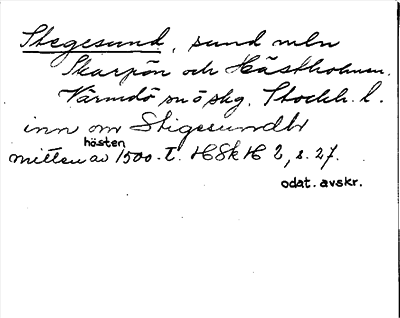 Stegesund, sund mln
Skarpön och Hästholmen.
Värmdö sn ö skg. Stockh. l.
inn om Stigesundtt
hösten
mitten av 1500-t. HSkH 2, s. 27.
odat. avskr.